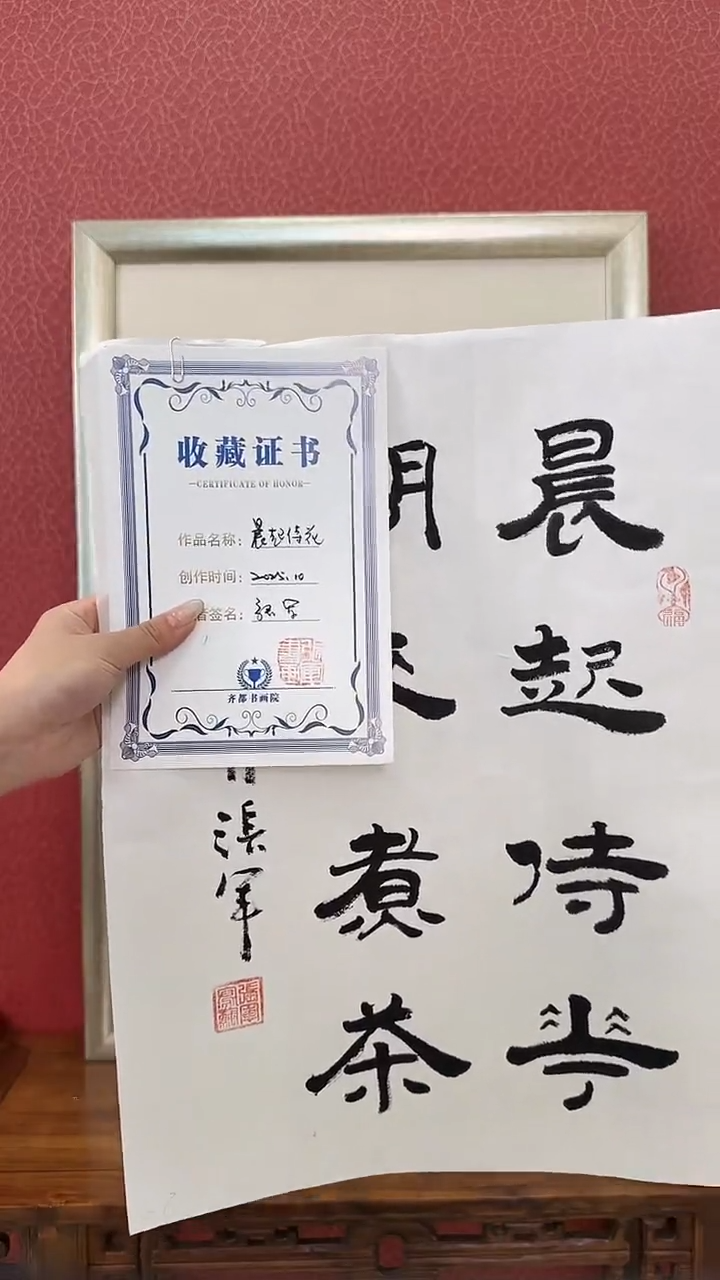 收藏证书
—CERTIFICATE OF HONOR—
作品名称：晨起侍花
创作时间：2025.10
者签名：张军
齐都书画院
晨起侍花
煮茶
張軍